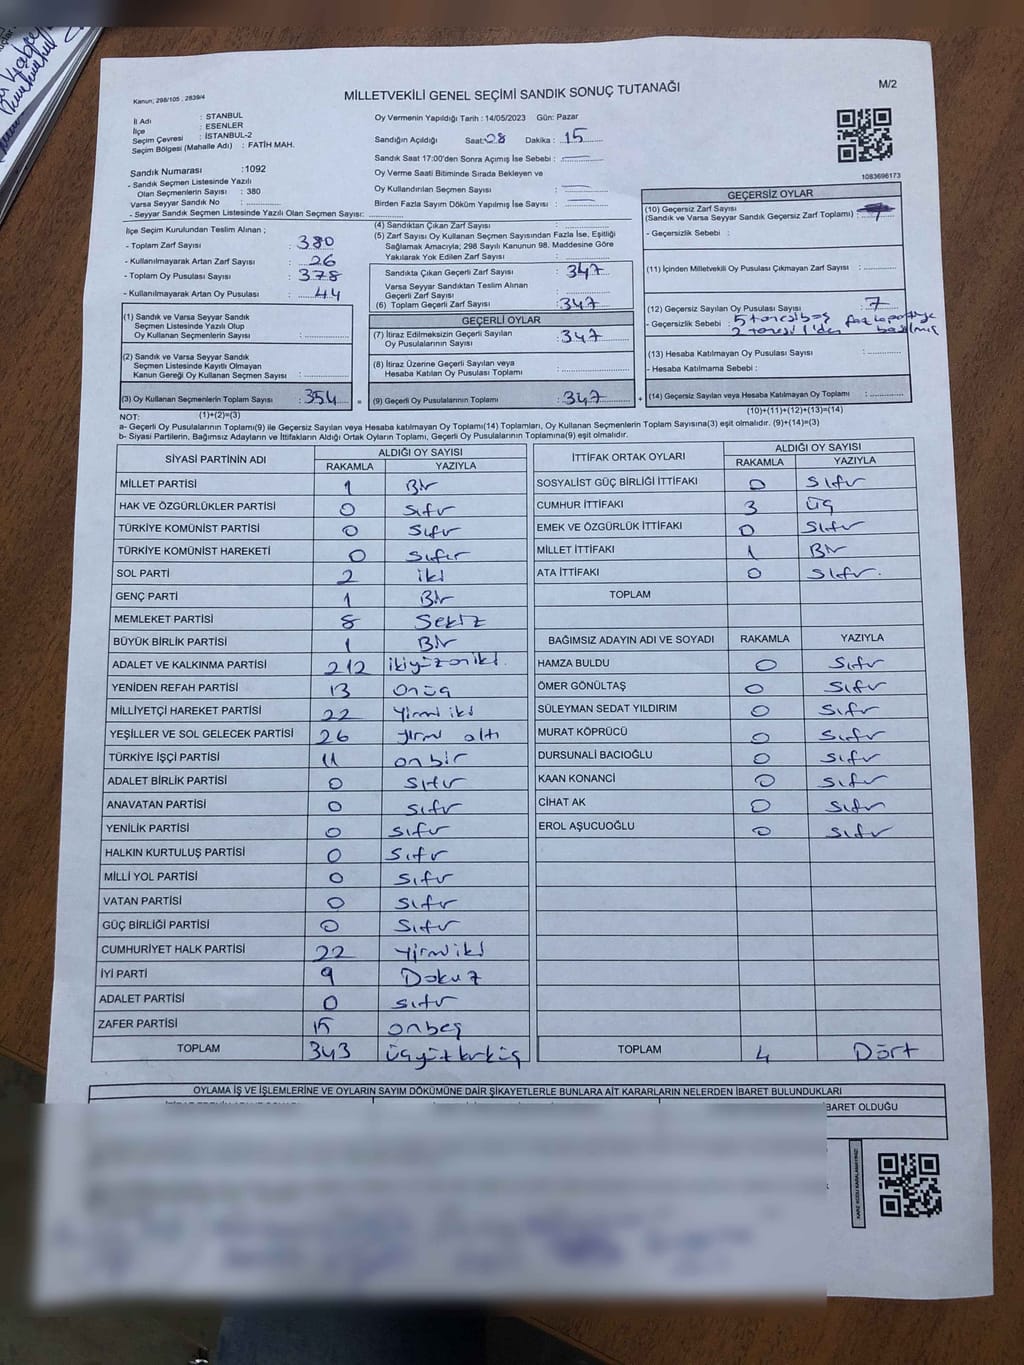 Kanun; 298/105 , 2839/4
MİLLETVEKİLİ GENEL SEÇİMİ SANDIK SONUÇ TUTANAĞI
M/2
İl Adı : İSTANBUL
İlçe : ESENLER
Seçim Çevresi : İSTANBUL-2
Seçim Bölgesi (Mahalle Adı) : FATİH MAH.
Sandık Numarası :1092
- Sandık Seçmen Listesinde Yazılı
Olan Seçmenlerin Sayısı : 380
Varsa Seyyar Sandık No :
- Seyyar Sandık Seçmen Listesinde Yazılı Olan Seçmen Sayısı:
İlçe Seçim Kurulundan Teslim Alınan ;
- Toplam Zarf Sayısı : 380
- Kullanılmayarak Artan Zarf Sayısı : 26
- Toplam Oy Pusulası Sayısı : 378
- Kullanılmayarak Artan Oy Pusulası : 44
(1) Sandık ve Varsa Seyyar Sandık
Seçmen Listesinde Yazılı Olup
Oy Kullanan Seçmenlerin Sayısı :
(2) Sandık ve Varsa Seyyar Sandık
Seçmen Listesinde Kayıtlı Olmayan
Kanun Gereği Oy Kullanan Seçmen Sayısı :
(3) Oy Kullanan Seçmenlerin Toplam Sayısı : 354
(1)+(2)=(3)
Oy Vermenin Yapıldığı Tarih : 14/05/2023 Gün: Pazar
Sandığın Açıldığı Saat: 28 Dakika : 15
Sandık Saat 17:00'den Sonra Açımış İse Sebebi :
Oy Verme Saati Bitiminde Sırada Bekleyen ve
Oy Kullandırılan Seçmen Sayısı :
Birden Fazla Sayım Döküm Yapılmış İse Sayısı :
(4) Sandıktan Çıkan Zarf Sayısı :
(5) Zarf Sayısı Oy Kullanan Seçmen Sayısından Fazla İse, Eşitliği
Sağlamak Amacıyla; 298 Sayılı Kanunun 98. Maddesine Göre
Yakılarak Yok Edilen Zarf Sayısı :
Sandıkta Çıkan Geçerli Zarf Sayısı : 347
Varsa Seyyar Sandıktan Teslim Alınan
Geçerli Zarf Sayısı :
(6) Toplam Geçerli Zarf Sayısı : 347
GEÇERLİ OYLAR
(7) İtiraz Edilmeksizin Geçerli Sayılan
Oy Pusulalarının Sayısı : 347
(8) İtiraz Üzerine Geçerli Sayılan veya
Hesaba Katılan Oy Pusulası Toplamı :
= (9) Geçerli Oy Pusulalarının Toplamı : 347 +
1083696173
GEÇERSİZ OYLAR
(10) Geçersiz Zarf Sayısı
(Sandık ve Varsa Seyyar Sandık Geçersiz Zarf Toplamı) :
- Geçersizlik Sebebi :
(11) İçinden Milletvekili Oy Pusulası Çıkmayan Zarf Sayısı :
(12) Geçersiz Sayılan Oy Pusulası Sayısı : 7
- Geçersizlik Sebebi : 5 tanesi boş
2 tanesi 1'den fazla partiye basılmış
(13) Hesaba Katılmayan Oy Pusulası Sayısı :
- Hesaba Katılmama Sebebi :
(14) Geçersiz Sayılan veya Hesaba Katılmayan Oy Toplamı :
(10)+(11)+(12)+(13)=(14)
NOT:
a- Geçerli Oy Pusulalarının Toplamı(9) ile Geçersiz Sayılan veya Hesaba Katılmayan Oy Toplamı(14) Toplamları, Oy Kullanan Seçmenlerin Toplam Sayısına(3) eşit olmalıdır. (9)+(14)=(3)
b- Siyasi Partilerin, Bağımsız Adayların ve İttifakların Aldığı Ortak Oyların Toplamı, Geçerli Oy Pusulalarının Toplamına(9) eşit olmalıdır.
SİYASİ PARTİNİN ADI ALDIĞI OY SAYISI
RAKAMLA YAZIYLA
MİLLET PARTİSİ 1 Bir
HAK VE ÖZGÜRLÜKLER PARTİSİ 0 Sıfır
TÜRKİYE KOMÜNİST PARTİSİ 0 Sıfır
TÜRKİYE KOMÜNİST HAREKETİ 0 Sıfır
SOL PARTİ 2 iki
GENÇ PARTİ 1 Bir
MEMLEKET PARTİSİ 8 Sekiz
BÜYÜK BİRLİK PARTİSİ 1 Bir
ADALET VE KALKINMA PARTİSİ 212 ikiyüzoniki.
YENİDEN REFAH PARTİSİ 13 onüç
MİLLİYETÇİ HAREKET PARTİSİ 22 Yirmiiki
YEŞİLLER VE SOL GELECEK PARTİSİ 26 yirmi altı
TÜRKİYE İŞÇİ PARTİSİ 11 onbir
ADALET BİRLİK PARTİSİ 0 Sıfır
ANAVATAN PARTİSİ 0 Sıfır
YENİLİK PARTİSİ 0 Sıfır
HALKIN KURTULUŞ PARTİSİ 0 Sıfır
MİLLİ YOL PARTİSİ 0 Sıfır
VATAN PARTİSİ 0 Sıfır
GÜÇ BİRLİĞİ PARTİSİ 0 Sıfır
CUMHURİYET HALK PARTİSİ 22 Yirmiiki
İYİ PARTİ 9 Dokuz
ADALET PARTİSİ 0 sıfır
ZAFER PARTİSİ 15 onbeş
TOPLAM 343 üçyüzkırküç
İTTİFAK ORTAK OYLARI ALDIĞI OY SAYISI
RAKAMLA YAZIYLA
SOSYALİST GÜÇ BİRLİĞİ İTTİFAKI 0 Sıfır
CUMHUR İTTİFAKI 3 üç
EMEK VE ÖZGÜRLÜK İTTİFAKI 0 Sıfır
MİLLET İTTİFAKI 1 Bir
ATA İTTİFAKI 0 Sıfır.
TOPLAM
BAĞIMSIZ ADAYIN ADI VE SOYADI RAKAMLA YAZIYLA
HAMZA BULDU 0 Sıfır
ÖMER GÖNÜLTAŞ 0 Sıfır
SÜLEYMAN SEDAT YILDIRIM 0 Sıfır
MURAT KÖPRÜCÜ 0 Sıfır
DURSUNALİ BACIOĞLU 0 Sıfır
KAAN KONANCİ 0 Sıfır
CİHAT AK 0 Sıfır
EROL AŞUCUOĞLU 0 Sıfır
TOPLAM 4 Dört
OYLAMA İŞ VE İŞLEMLERİNE VE OYLARIN SAYIM DÖKÜMÜNE DAİR ŞİKAYETLERLE BUNLARA AİT KARARLARIN NELERDEN İBARET BULUNDUKLARI
BARET OLDUĞU
KARE KODU KARALAMAYINIZ